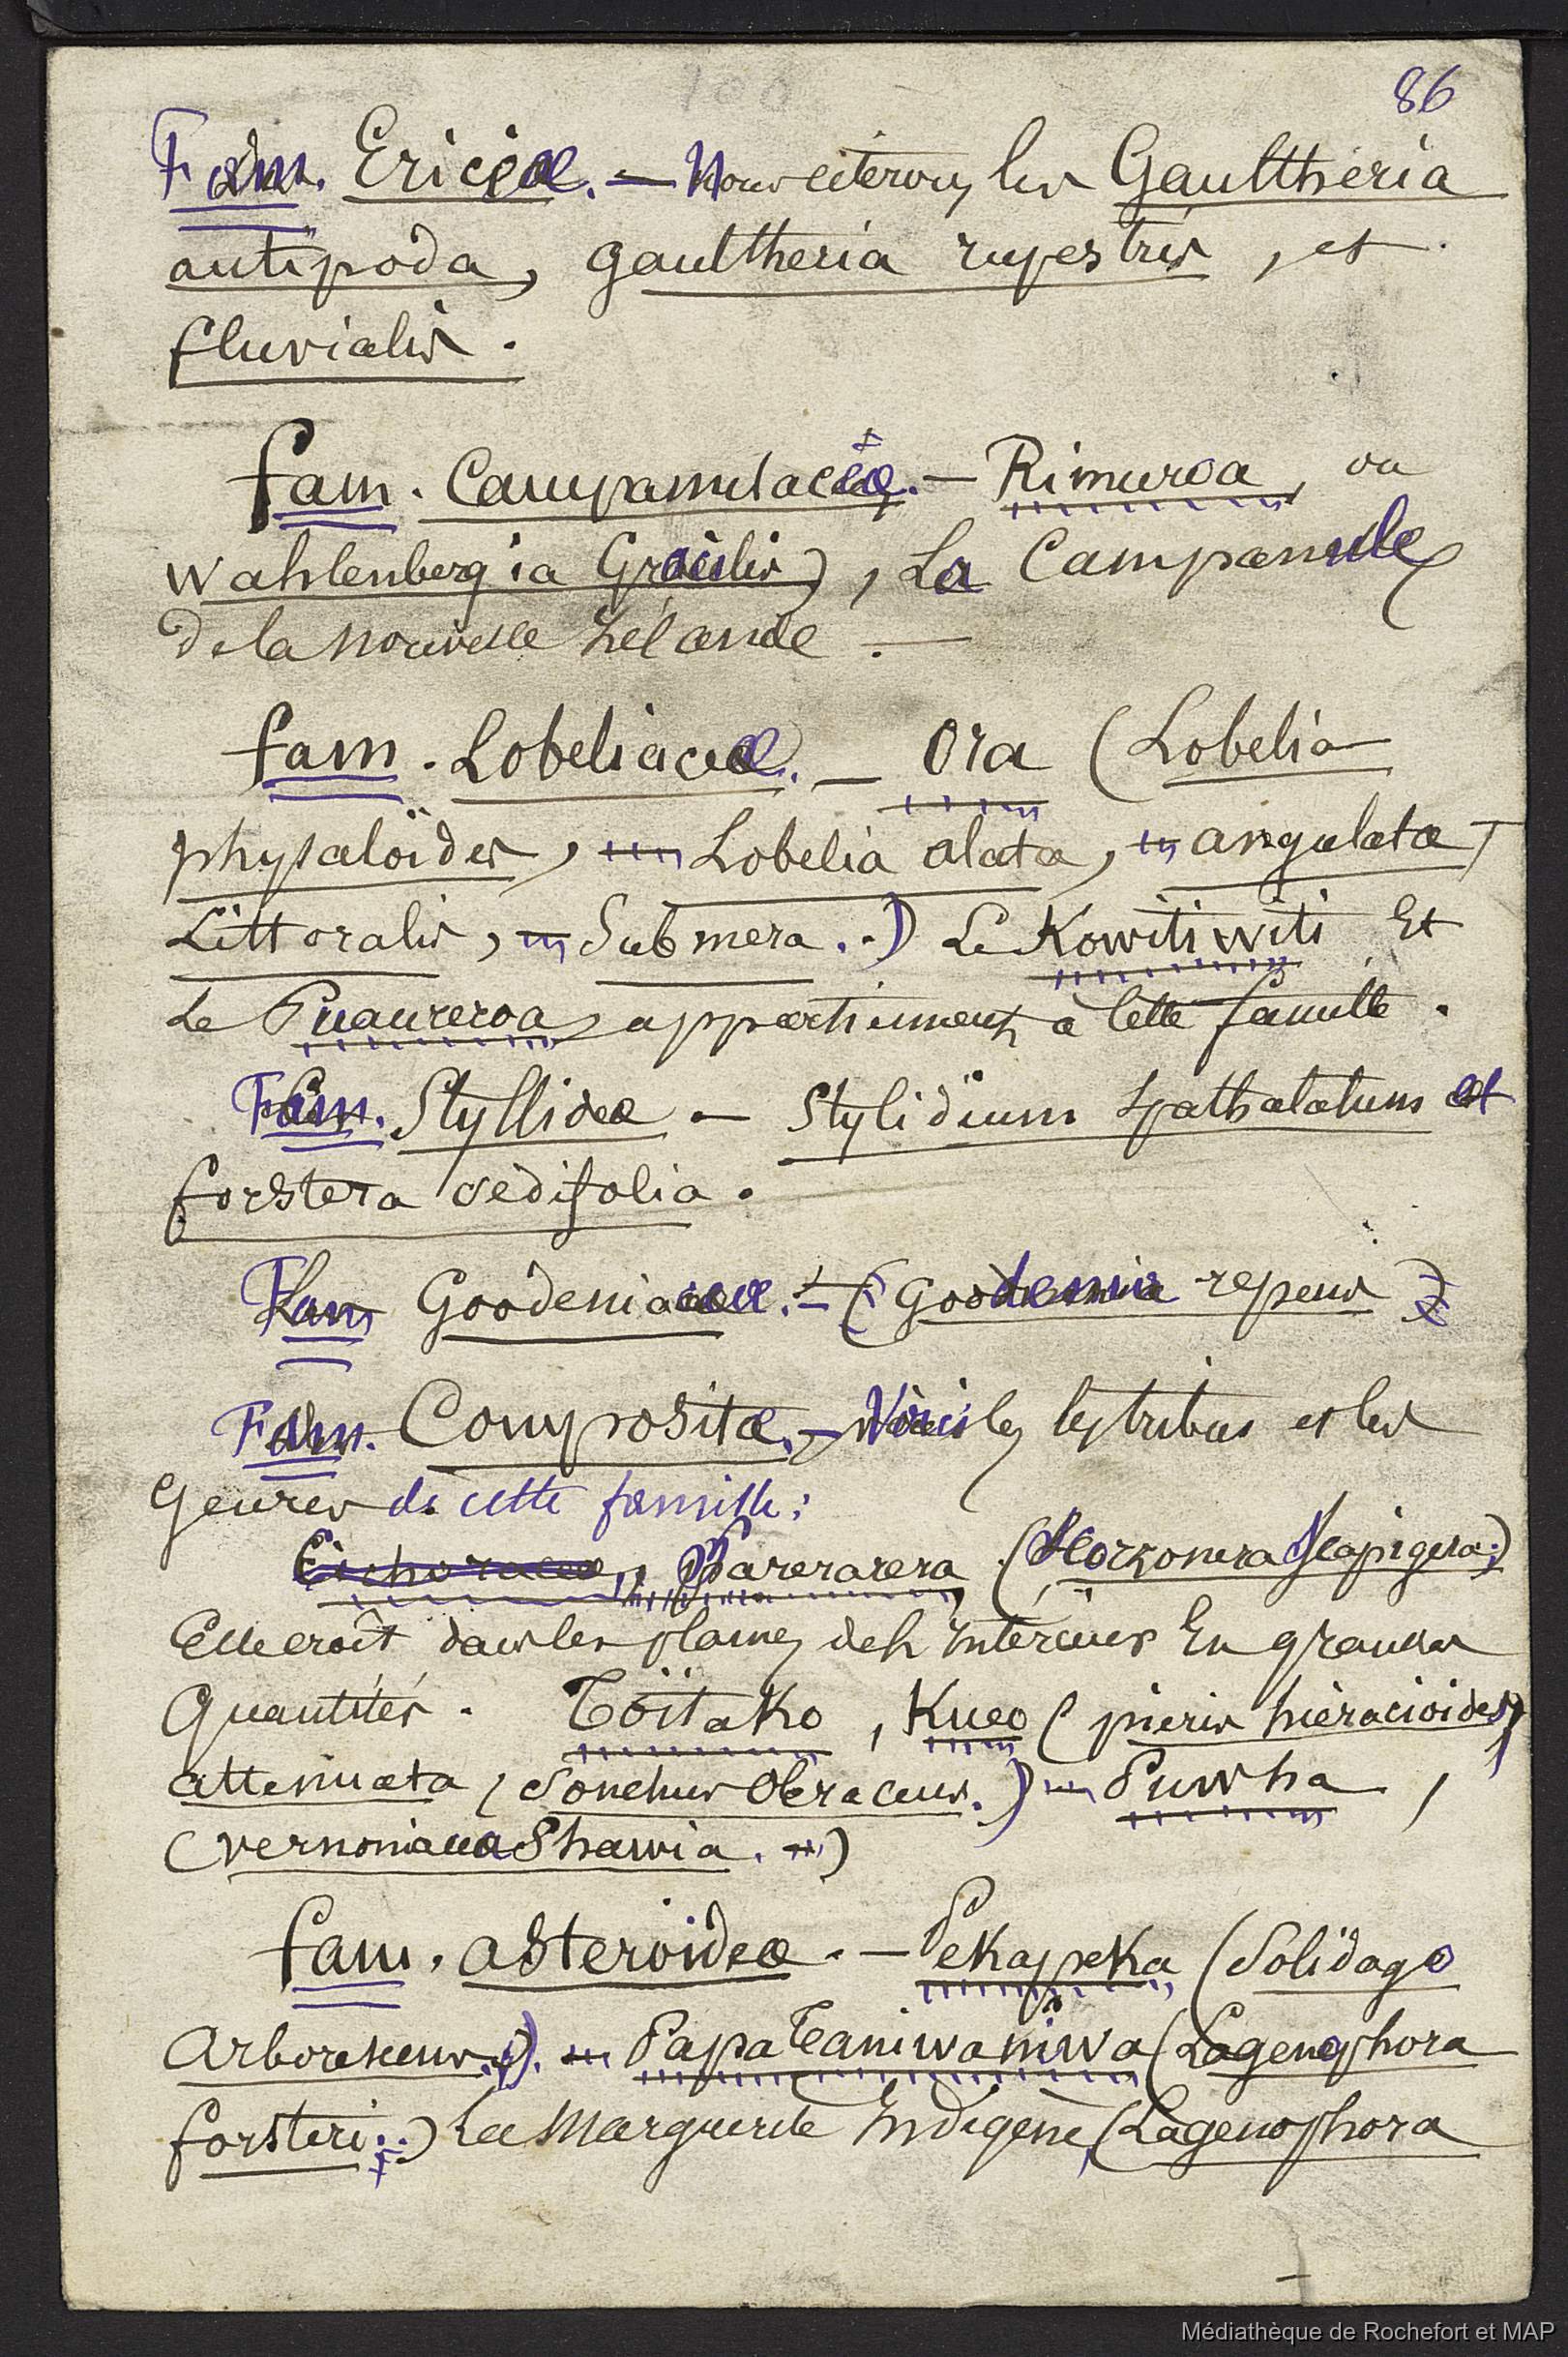 86
Fam. Ericeae. — Nous citerons les Gaultheria
antipoda, gaultheria rupestris, et
fluvialis.
fam. Campanulaceae. — Rimuroa, ou
Wahlenbergia Gracilis), La Campanule
de la Nouvelle Zélande. —
fam. Lobeliaceae. — Ora (Lobelia
physaloïdes, — Lobelia alata, — angulata,
Littoralis, — Submera..) Le Kowitiwiti Et
Le Puaureroa, appartiennent à cette famille.
Fam. Styllideae — Stylidium spathulatum et
forstera sedifolia.
Fam Goodeniaceae. — (Goodenia repens)
Fam. Compositae. — Voici les tribus et les
genres de cette famille:
Cichoraceae, Parerarera (Scorzonera Scapigera.)
Elle croît dans les plaines de l'intérieur En grandes
Quantités. Toïtako, Kueo (picris hieracioides,
attenuata, Sonchus Oleraceus.) — Puwha,
(vernoniaceae Shawia.)
fam. asteroideae. — Pekapeka (Solidago
Arborescens.) — Papataniwaniwa (Lagenophora
forsteri..) La Marguerite Indigène, (Lagenophora
Médiathèque de Rochefort et MAP